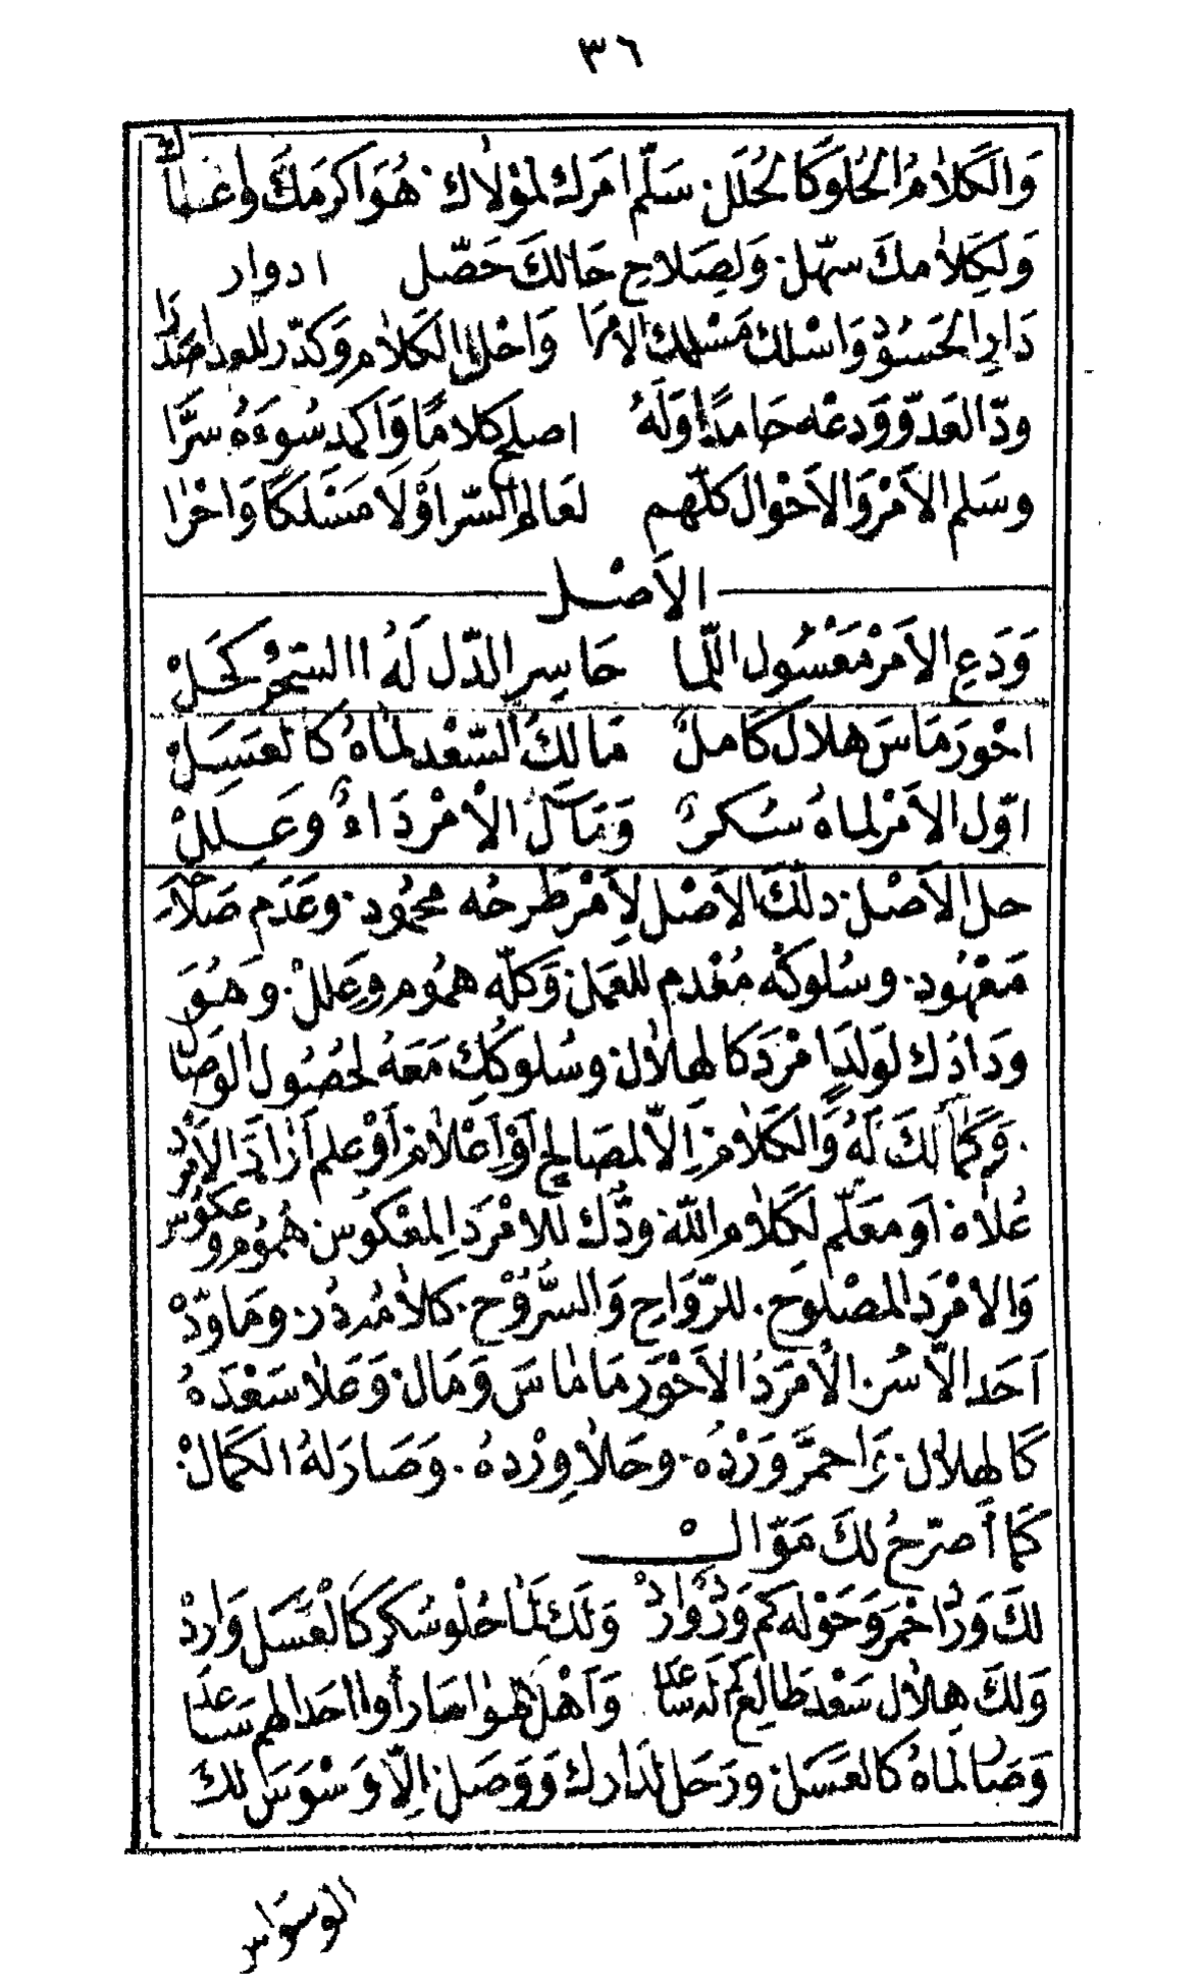 ٣٦
وَالكَلَامُ الحُلو كَالحُلَل. سَلّم امرَك لمَولَاك. هُوَ اكرَمَكَ واعطاك
وَلكَلَامكَ سهّل. وَلصَلاح حَالكَ حَصّل ادوار
دَارِ الحَسُود وَاسْلك مَسْلك الامرا وَاحْل الكَلَام وَكدّر للعدا صَدرَا
ودّ العَدوّ وَدعْه حَامدًا وَلَهُ اصلح كلَامًا وَاكمد سُوءَهُ سرَّا
وسَلم الاَمْرَ وَالاَحْوَال كلّهم لعَالم السّر اوْلَا مَسْلكًا وَاخْرا
الاَصْل
وَدَعِ الاَمْرَ مَعْسُول اللّما حَاسِر الدّل لَهُ السّحْر كَحَلْ
احْور مَاسَ هلَال كَامل مَالِكُ السّعْد لمَاهُ كَالعَسَلْ
اوّل الاَمْر لمَاهُ سُكرٌ وَمَآلُ الاَمْر دَاءٌ وعَلَلْ
حل الاَصْل. ذلكَ الاَصْل لِاَمْر طَرحُه محمُود. وعَدَم صَلَاحه
مَعْهُود. وسُلوكهُ مُعْدم للعَمَل. وَكلّه همُوم وعِلَلْ. وَهُوَ
ودَادُك لوَلدٍ امْرَد كالهلَال. وسُلوكك مَعَهُ لحُصُول الوصَال
. وَكمَالكَ لَهُ وَالكَلَام. اِلّا لمصَالح اَوْ اِعْلَام. اَوْ علم اَرَادَ الاَمْرد
عُلَاه. اَو مَعَلّم لكَلَام اللّه. ودُّك للامْرَد المعْكوُس. هُمُوم وعكوُس
وَالامْرَد المصْلوح. للرّوَاح وَالسُّرُوْح. كالَا مُردُر. ومَا ودّ
اَحَد الّا سُر. الاَمرَدُ الاَحْوَر مَامَاسَ وَمَال. وَعَلَا سَعْدَهُ
كَالهلَال. وَاحمَرَّ وَرْدُه. وحَلَا وِرْدهُ. وَصَارَ لهُ الكَمَالْ.
كَمَا اَصرّحُ لكَ مَوّالْ
لكَ وَرْد احْمَر وَحَوْله كَم وَرْد وَاردْ وَلَك لَمَا حُلْو سُكر كَالْعَسَل وَاردْ
وَلكَ هِلَال سَعْد طَالع كَم لَه سَاعَد وَاَهْل هَوَاهَا رَأوا احَد الهم سَاعد
وَصَار لمَاهُ كالعَسَل. ورَحَل لدَارك وَوَصَل. اِلّا وَسْوَسَ لكَ
الوسوَاس